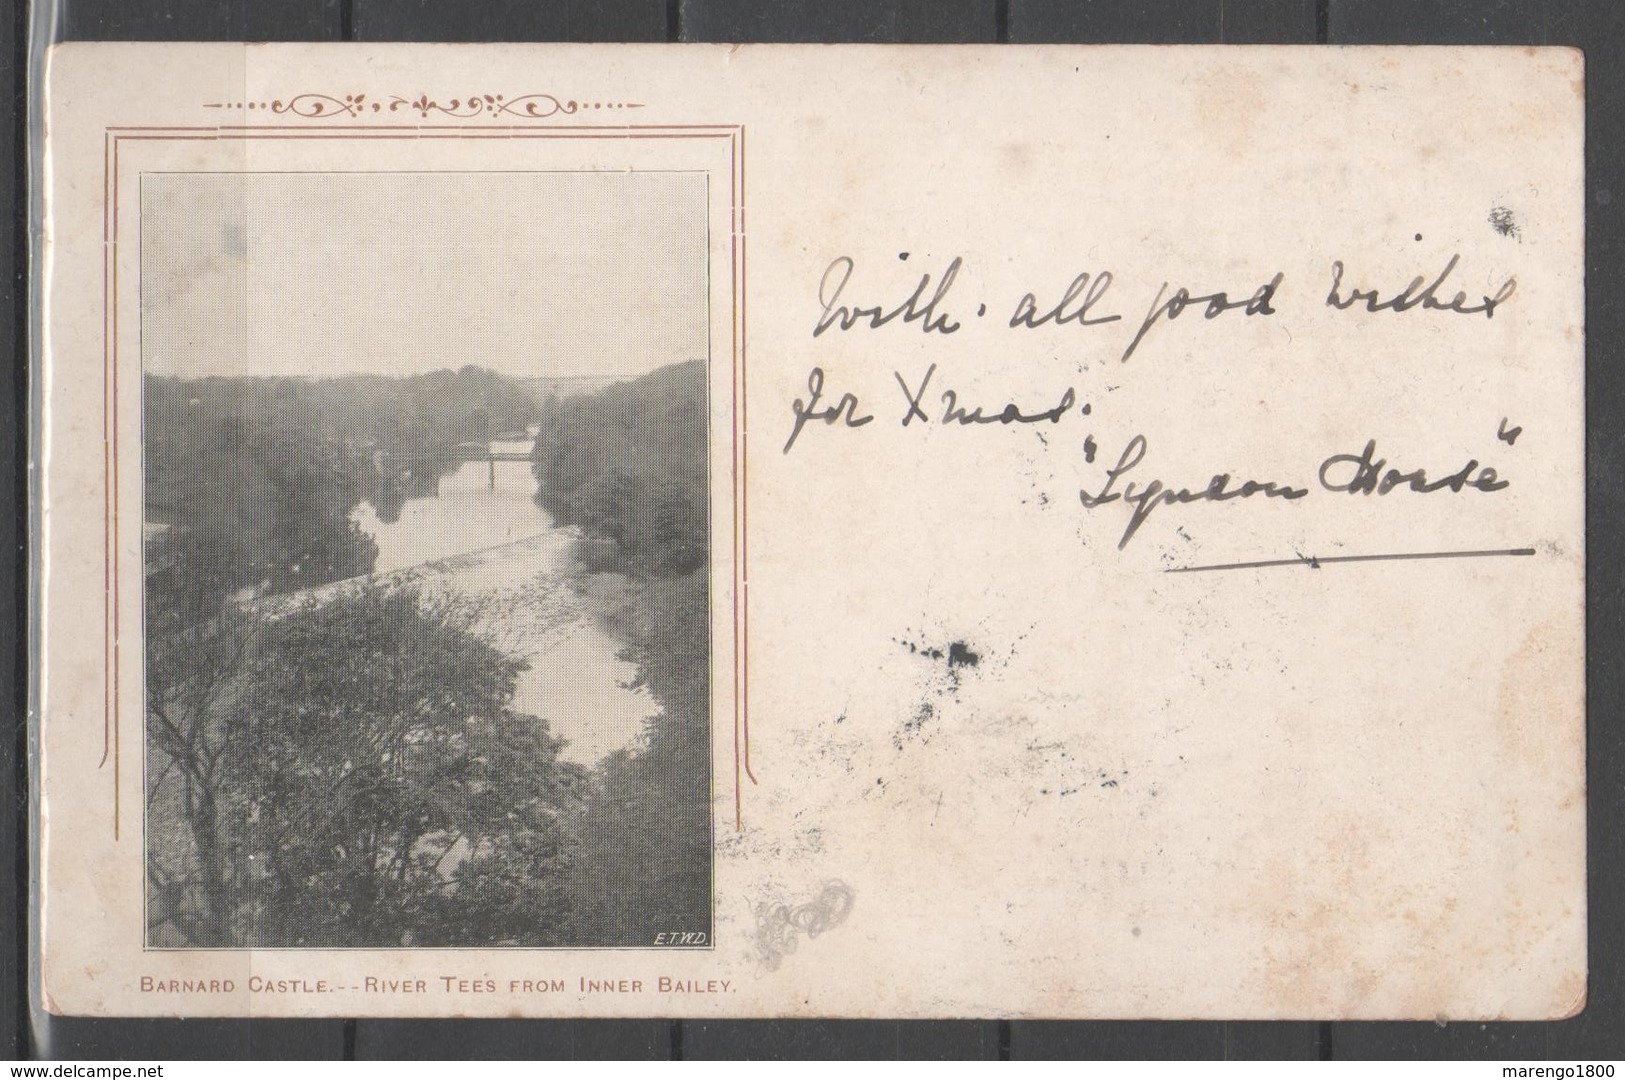 With all good wishes
for Xmas.
"Lyndon House"
E.T.W.D.
BARNARD CASTLE.--RIVER TEES FROM INNER BAILEY.
www.delcampe.net
marengo1800